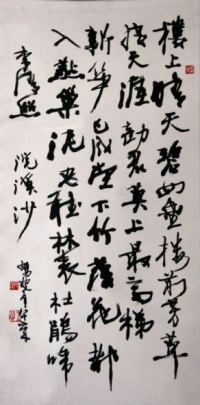 樓上晴天碧四垂樓前芳草
接天涯勸君莫上最高梯
新笋已成堂下竹落花都
入燕巢泥忍聽林表杜鵑啼
李清照 浣溪沙